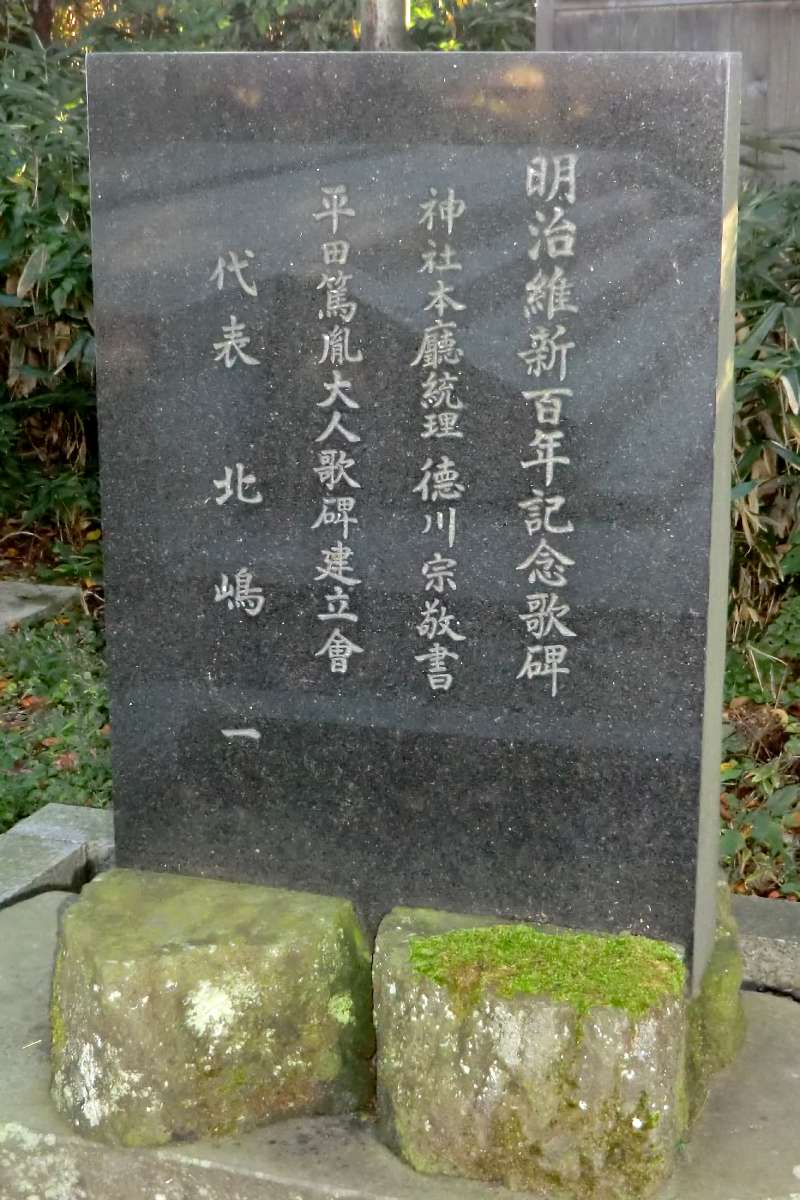 明治維新百年記念歌碑
神社本廳統理 徳川宗敬書
平田篤胤大人歌碑建立會
代表 北嶋 一